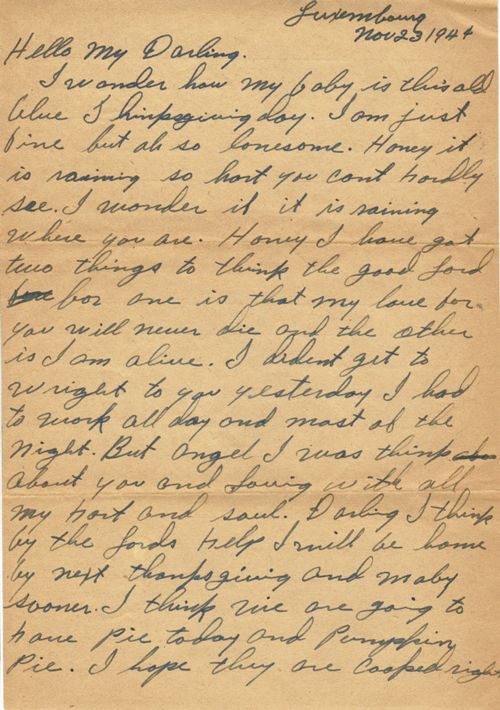 Luxembourg
Nov 23 1944
Hello My Darling.
I wonder how my baby is this old
blue Thinpsgiving day. I am just
fine but ah so lonesome. Honey it
is raining so hart you cont hardly
see. I wonder if it is raining
where you are. Honey I have got
two things to think the good Lord
for one is that my love for
you will never die and the other
is I am alive. I dident get to
wright to you yesterday I had
to work all day and most of the
night. But angel I was think
about you and loving with all
my hart and soul. Darling I think
by the Lords help I will be home
by next thanpsgiving and maby
sooner. I think we are going to
have Pie today and Pumpkin
Pie. I hope they are Cooped right